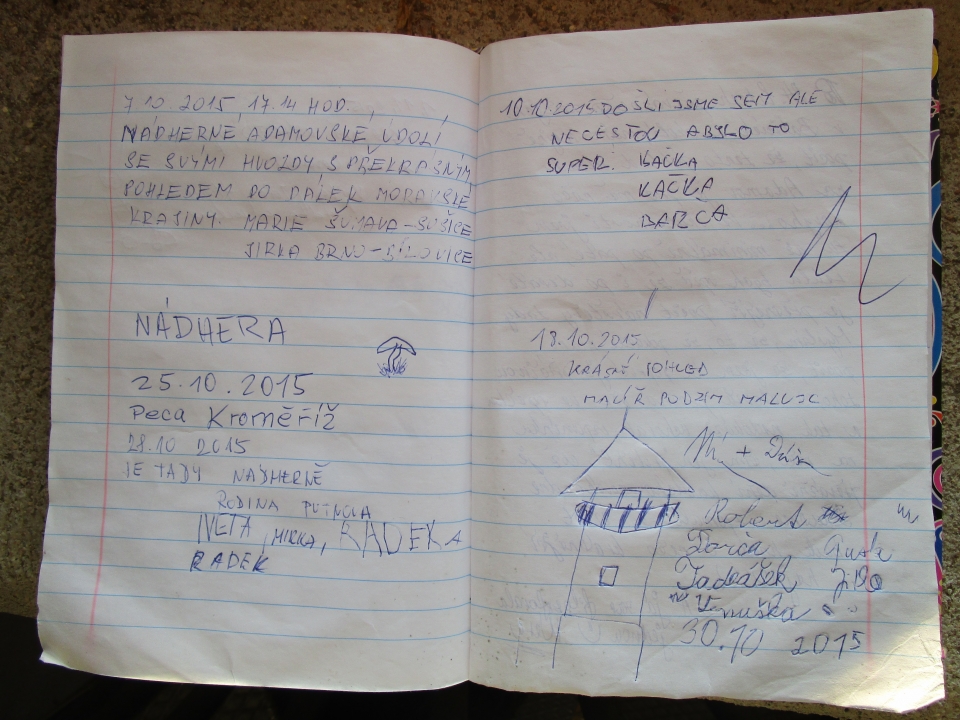 7.10.2015 17.14 HOD.
NÁDHERNÉ ADAMOVSKÉ ÚDOLÍ
SE SVÝMI HVOZDY S PŘEKRÁSNÝM
POHLEDEM DO DÁLEK MORAVSKÉ
KRAJINY. MARIE ŠUMAVA-SUŠICE
JIRKA BRNO-BÍLOVICE
NÁDHERA
25.10.2015
Peca Kroměříž
28.10 2015
JE TADY NÁDHERNĚ
RODINA PUTNOVA
IVETA, MIRKA, RADEK A
RADEK
10.10.2015 DOŠLI JSME SEM ALE
NECESTOU ABYLO TO
SUPER. KAČKA
KAČKA
BARČA
18.10.2015
KRÁSNÝ POHLED
MALÍŘ PODZIM MALUJE
Robert
Terča
Tadeášek
30.10 2015